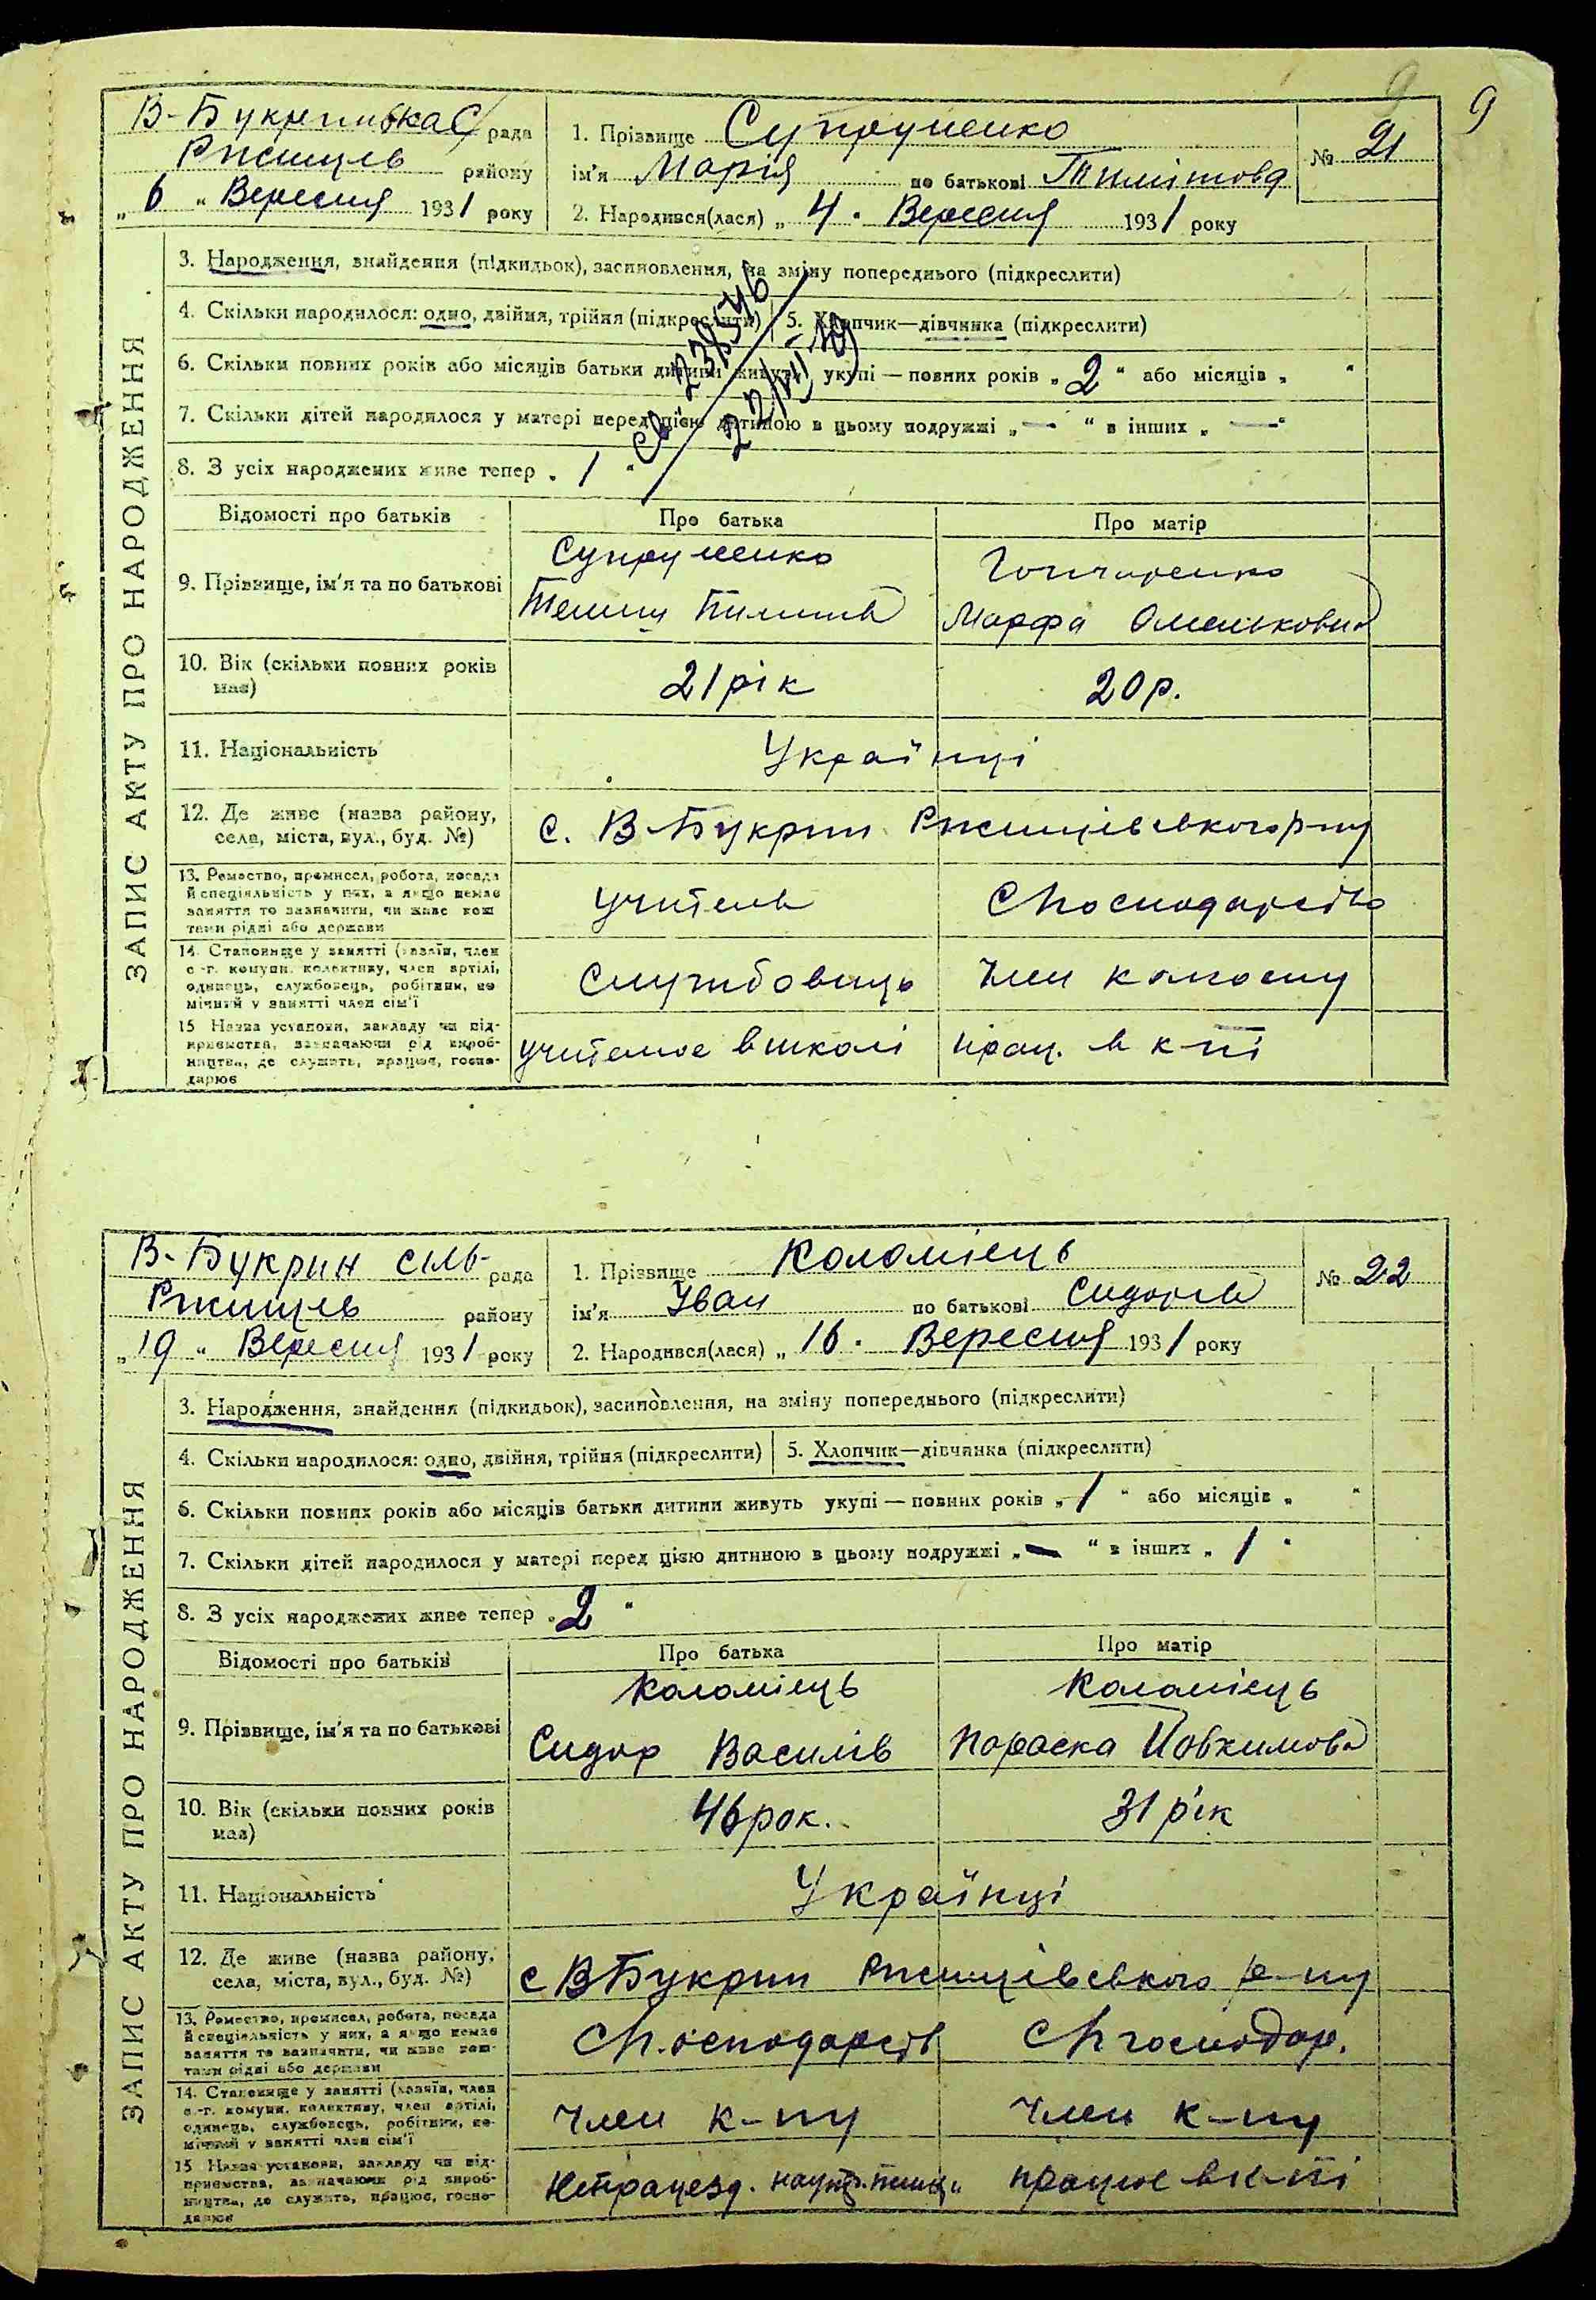 9 9
В-Букринська С/рада
Ржищів району
„ 6 “ Вересня 1931 року
1. Прізвище Супруненко
№ 21
ім'я Марія по батькові
2. Народився(лася) „ 4 . Вересня 1931 року
ЗАПИС АКТУ ПРО НАРОДЖЕННЯ
3. Народження, знайдення (підкидьок), засиновлення, на зміну попереднього (підкреслити)
4. Скільки народилося: одно, двійня, трійня (підкреслити) 5. Хлопчик—дівчинка (підкреслити)
6. Скільки повних років або місяців батьки дитини живуть укупі — повних років „ 2 “ або місяців „ “
7. Скільки дітей народилося у матері перед цією дитиною в цьому подружжі „ — “ в інших „ — “
8. З усіх народжених живе тепер „ 1 “
Відомості про батьків Про батька Про матір
9. Прізвище, ім'я та по батькові
Супруненко Гончаренко
Марфа
10. Вік (скільки повних років має)
21 рік 20 р.
11. Національність Українці
12. Де живе (назва району,
села, міста, вул., буд. №)
с. В-Букрин Ржищівського р-ну
13. Ремество, промисел, робота, посада
й спеціяльність у них, а якщо немає
заняття то зазначити, чи живе кош
тами рідні або держави
учитель С Господарство
14. Становище у занятті (хазяїн, член
с.-г. комуни, колективу, член артілі,
одинець, службовець, робітник, по
мічний у занятті член сім'ї
Службовець Член колгоспу
15 Назва установи, закладу чи під-
приємства, зазначаючи рід вироб-
ництва, де служить, працює, госпо-
дарює
учителює в школі прац. в к-ві
В-Букрин сіль- рада
Ржищів району
„ 19 “ Вересня 1931 року
1. Прізвище Коломієць
№ 22
ім'я Іван по батькові Сидорів
2. Народився(лася) „ 16 . Вересня 1931 року
ЗАПИС АКТУ ПРО НАРОДЖЕННЯ
3. Народження, знайдення (підкидьок), засиновлення, на зміну попереднього (підкреслити)
4. Скільки народилося: одно, двійня, трійня (підкреслити) 5. Хлопчик—дівчинка (підкреслити)
6. Скільки повних років або місяців батьки дитини живуть укупі — повних років „ 1 “ або місяців „ “
7. Скільки дітей народилося у матері перед цією дитиною в цьому подружжі „ — “ в інших „ 1 “
8. З усіх народжених живе тепер „ 2 “
Відомості про батьків Про батька Про матір
9. Прізвище, ім'я та по батькові
Коломієць Коломієць
Сидор Василів Параска Йовхимова
10. Вік (скільки повних років має)
46 рок. 31 рік
11. Національність Українці
12. Де живе (назва району,
села, міста, вул., буд. №)
с В Букрин Ржищівського р-ну
13. Ремество, промисел, робота, посада
й спеціяльність у них, а якщо немає
заняття то зазначити, чи живе кош-
тами рідні або держави
С Господарств С Господар.
14. Становище у занятті (хазяїн, член
с.-г. комуни, колективу, член артілі,
одинець, службовець, робітник, по-
мічний у занятті член сім'ї
Член к-ву Член к-ву
15 Назва установи, закладу чи під-
приємства, зазначаючи рід вироб-
ництва, де служить, працює, госпо-
дарює
Непрацезд. працює в к-ві